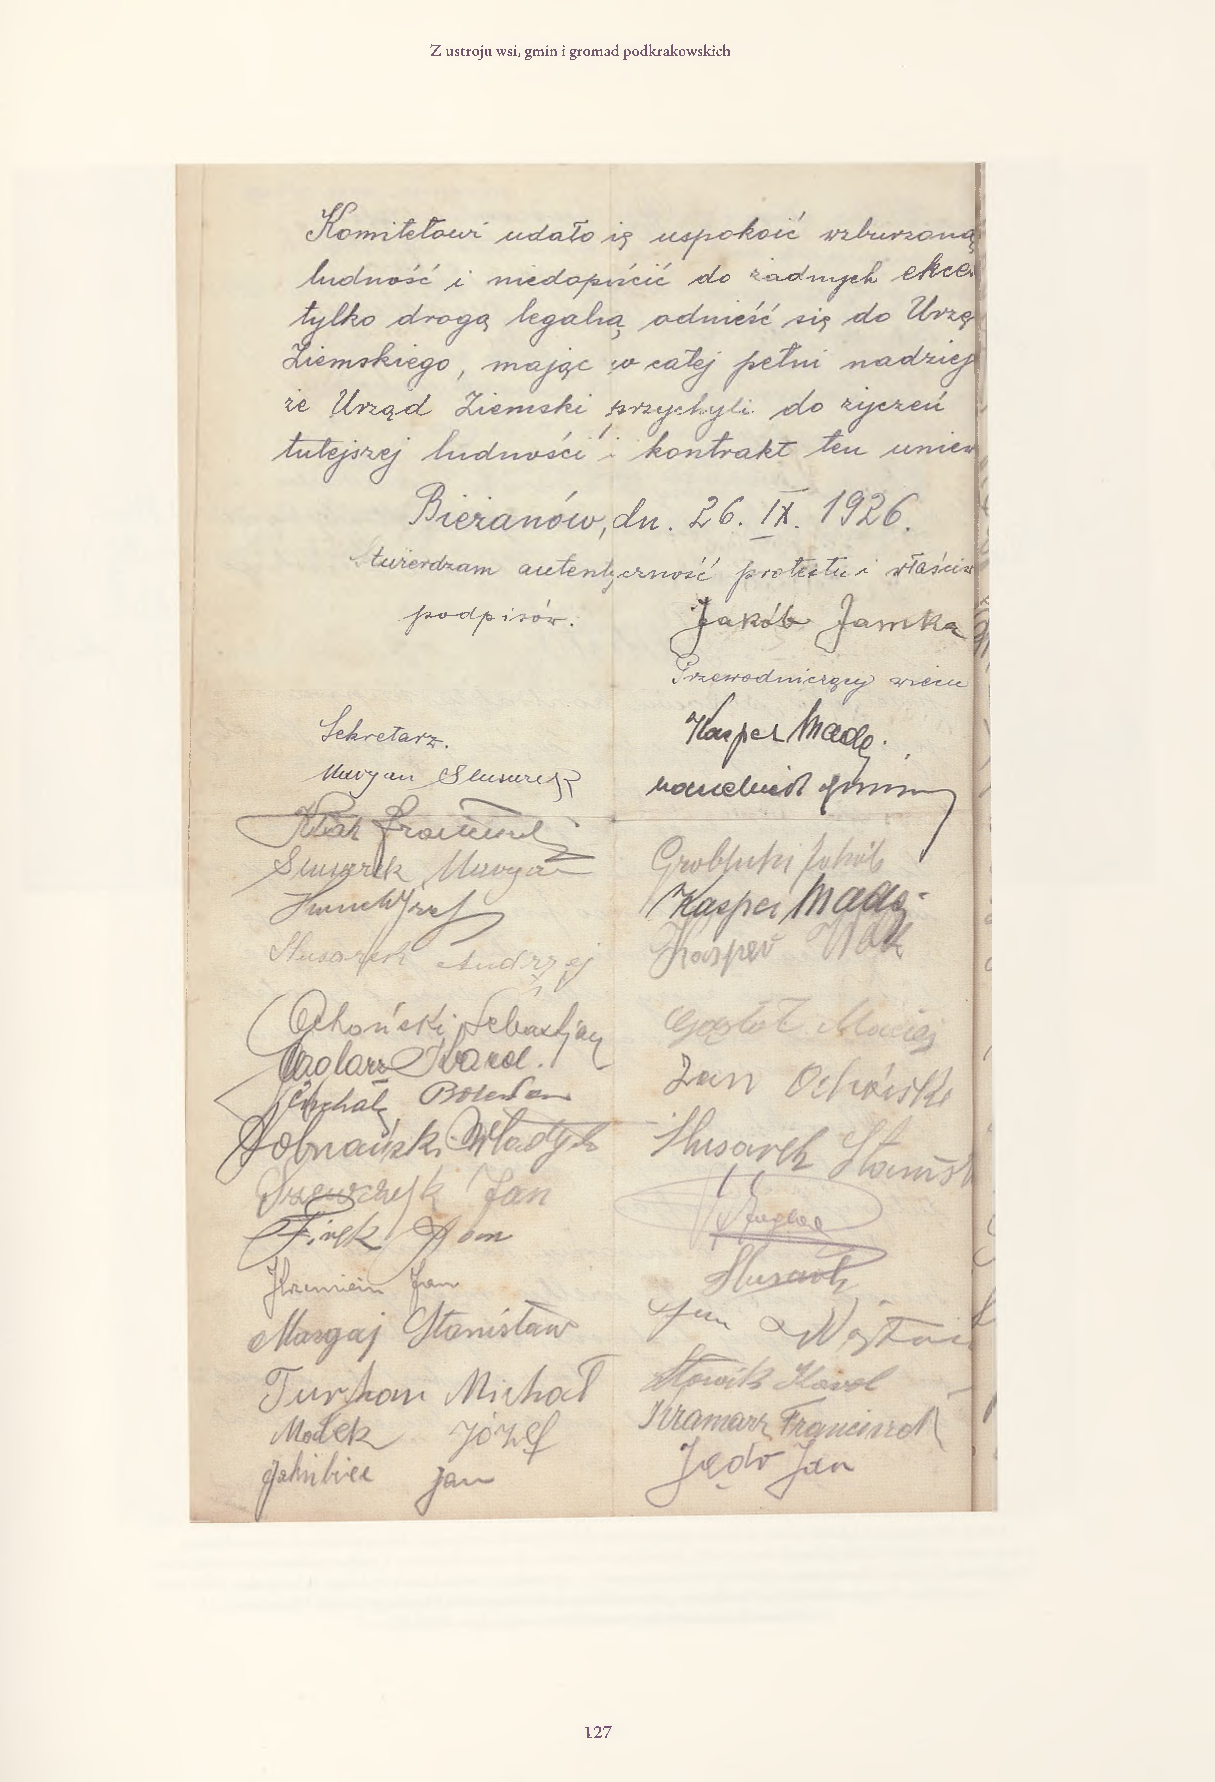 Z ustroju wsi, gmin i gromad podkrakowskich
Komitetowi udało się uspokoić wzburzoną
ludność i niedopuścić do żadnych eksce
tylko drogą legalną odnieść się do Urzę
Ziemskiego, mając w całej pełni nadzieję
że Urząd Ziemski przychyli do życzeń
tutejszej ludności i kontrakt ten uniew
Bieżanów, dn. 26. IX. 1926.
Stwierdzam autentyczność protestu i właściw
podpisów.
Jakób Jamka
Przewodniczący wiecu
Sekretarz.
Maryan Slusarek
Kasper Madej
naczelnik gminy
Slusarek Maryan
Józef
Slusarek Andrzej
Ochoński Sebastjan
Karol.
Bolesław
Władysł
Szewczyk Jan
Firek
Krzemień Jan
Masgaj Stanisław
Turchan Michał
Małek Józef
Jakubiec Jan
Jakób
Kasper Madej
Kasper Wilk
Maciej
Jan Ochoński
Slusarek Stanisł
Slusarek
Słowik Karol
Kramarz Franciszek
Jędo Jan
127